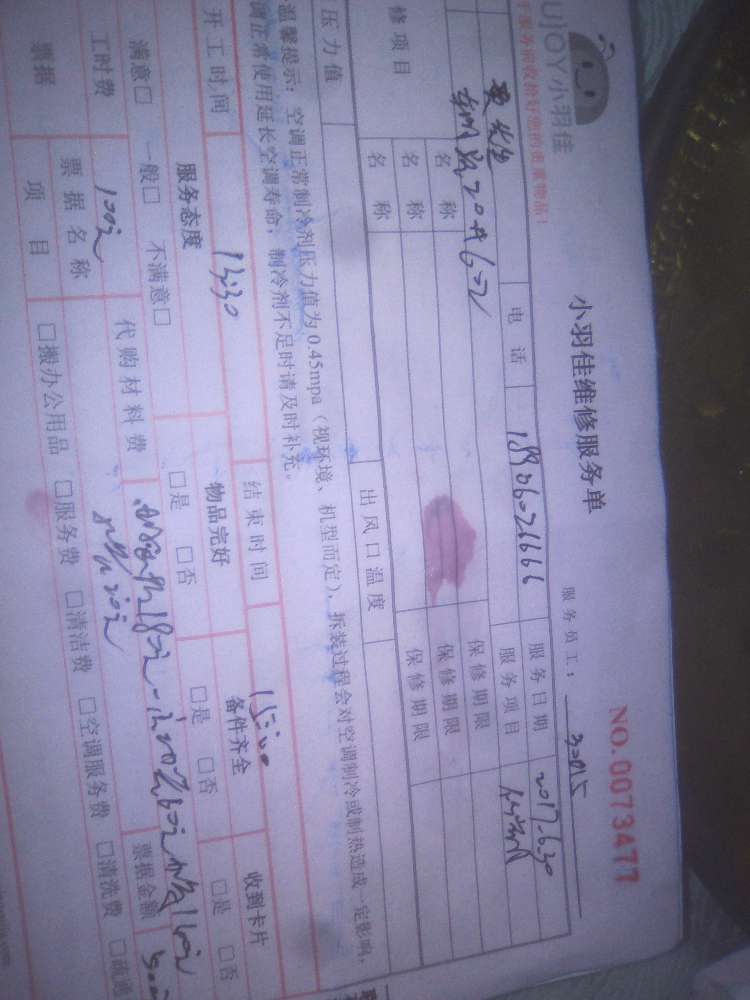 UJOY小羽佳
于服务前收拾好您的贵重物品!
小羽佳维修服务单
NO.0073477
服务员工:
黄先生
电话
服务日期 2017.6.30
6-02
服务项目
修项目
名称
保修期限
名称
保修期限
名称
保修期限
压力值
出风口温度
温馨提示:空调正常制冷剂压力值为0.45mpa(视环境、机型而定),拆装过程会对空调制冷或制热造成一定影响,
调正常使用延长空调寿命;制冷剂不足时请及时补充。
开工时间 13:30
结束时间 15:00
服务态度
物品完好
备件齐全
收到卡片
满意□ 一般□ 不满意□
□是 □否
□是 □否
□是 □否
工时费 100元
代购材料费
票据
票据名称
票据金额
项目
□搬办公用品 □服务费 □清洁费 □空调服务费 □清洗费 □疏通